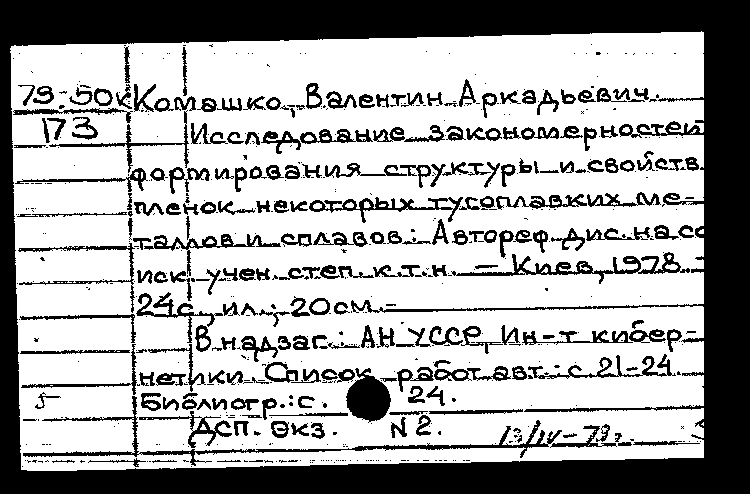 79-50к Комашко, Валентин Аркадьевич.
173 Исследование закономерностей
формирования структуры и свойств
пленок некоторых тугоплавких ме-
таллов и сплавов: Автореф. дис. на со
иск. учен. степ. к.т.н. — Киев, 1978 -
24с., ил.; 20см.-
В надзаг.: АН УССР, Ин-т кибер-
нетики. Список работ авт.: с. 21-24
Библиогр.: с. 24.
Дсп. Экз. N 2. 13/IV-79г.